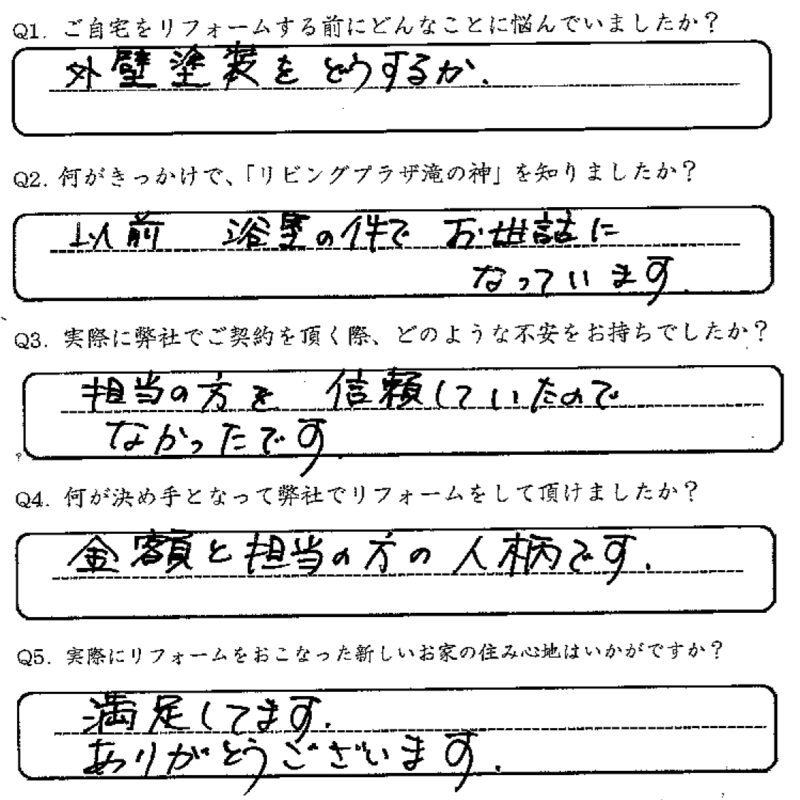 Q1. ご自宅をリフォームする前にどんなことに悩んでいましたか？
外壁塗装をどうするか.
Q2. 何がきっかけで、「リビングプラザ滝の神」を知りましたか？
以前 浴室の件で お世話に
なっています.
Q3. 実際に弊社でご契約を頂く際、どのような不安をお持ちでしたか？
担当の方を 信頼していたので
なかったです.
Q4. 何が決め手となって弊社でリフォームをして頂けましたか？
金額と担当の方の人柄です.
Q5. 実際にリフォームをおこなった新しいお家の住み心地はいかがですか？
満足してます.
ありがとうございます.